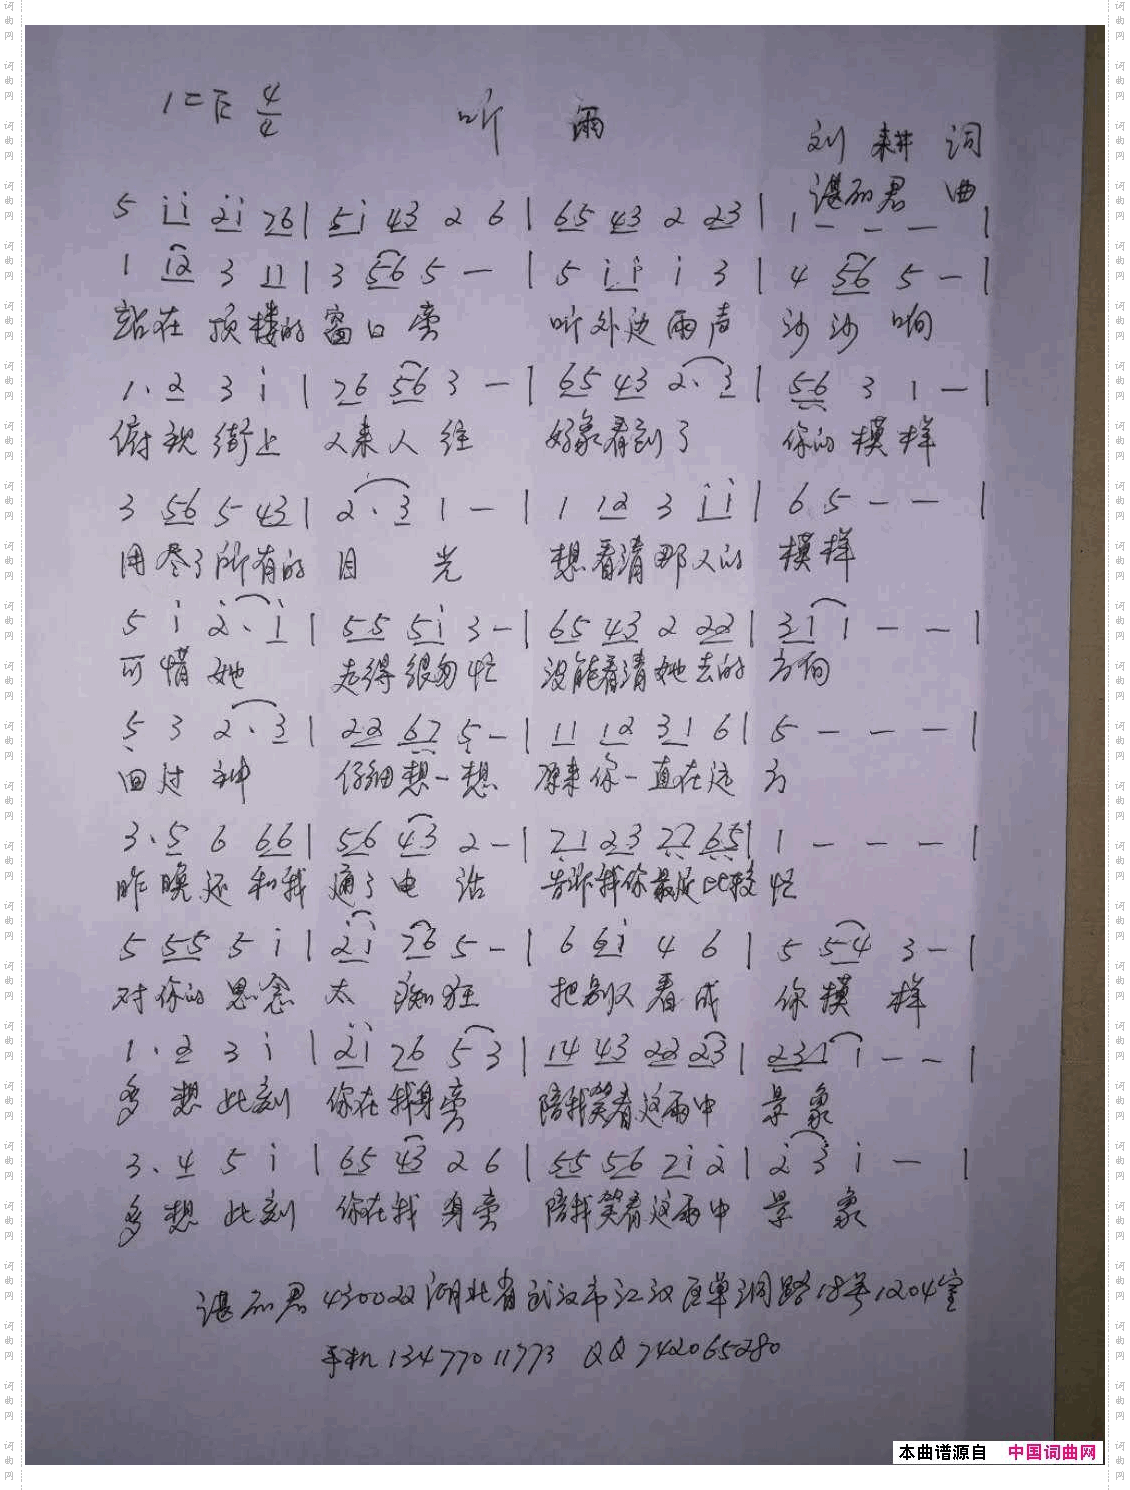 1=E 4/4
听 雨
刘 耕 词
谌丽君 曲
5 i i 2 i 7 6 | 5 i 4 3 2 6 | 6 5 4 3 2 2 3 | 1 - - - |
1 1 2 3 1 1 | 3 5 6 5 - | 5 i i i 3 | 4 5 6 5 - |
站在 顶楼的 窗口旁 听外边雨声 沙沙响
1. 2 3 i | 7 6 5 6 3 - | 6 5 4 3 2. 3 | 5 6 3 1 - |
俯视街上 人来人往 好象看到了 你的模样
3 5 6 5 4 3 | 2. 3 1 - | 1 1 2 3 i i | 6 5 - - |
用尽了所有的 目 光 想看清那人的 模样
5 i 2. i | 5 5 5 i 3 - | 6 5 4 3 2 2 2 | 3 1 1 - - |
可惜她 走得很匆忙 没能看清她去的 方向
5 3 2. 3 | 2 2 6 7 5 - | 1 1 1 2 3 1 6 | 5 - - - |
回过神 仔细想一想 原来你一直在远 方
3. 5 6 6 6 | 5 6 4 3 2 - | 7 1 2 3 7 7 6 5 | 1 - - - |
昨晚还和我 通了电 话 告诉我你最近比较 忙
5 5 5 5 i | 2 i 7 6 5 - | 6 6 i 4 6 | 5 5 4 3 - |
对你的思念 太 痴狂 把别人看成 你模 样
1. 2 3 i | 2 i 7 6 5 3 | 1 4 4 3 2 2 2 3 | 2 3 1 1 - - |
多想此刻 你在我身旁 陪我笑看这雨中 景 象
3. 4 5 i | 6 5 4 3 2 6 | 5 5 5 6 7 i 2 | 2 3 i - |
多想此刻 你在我 身旁 陪我笑看这雨中 景 象
谌丽君 430022 湖北省武汉市江汉区单洞路18号1204室
手机 13477011773 QQ 742065280
本曲谱源自 中国词曲网